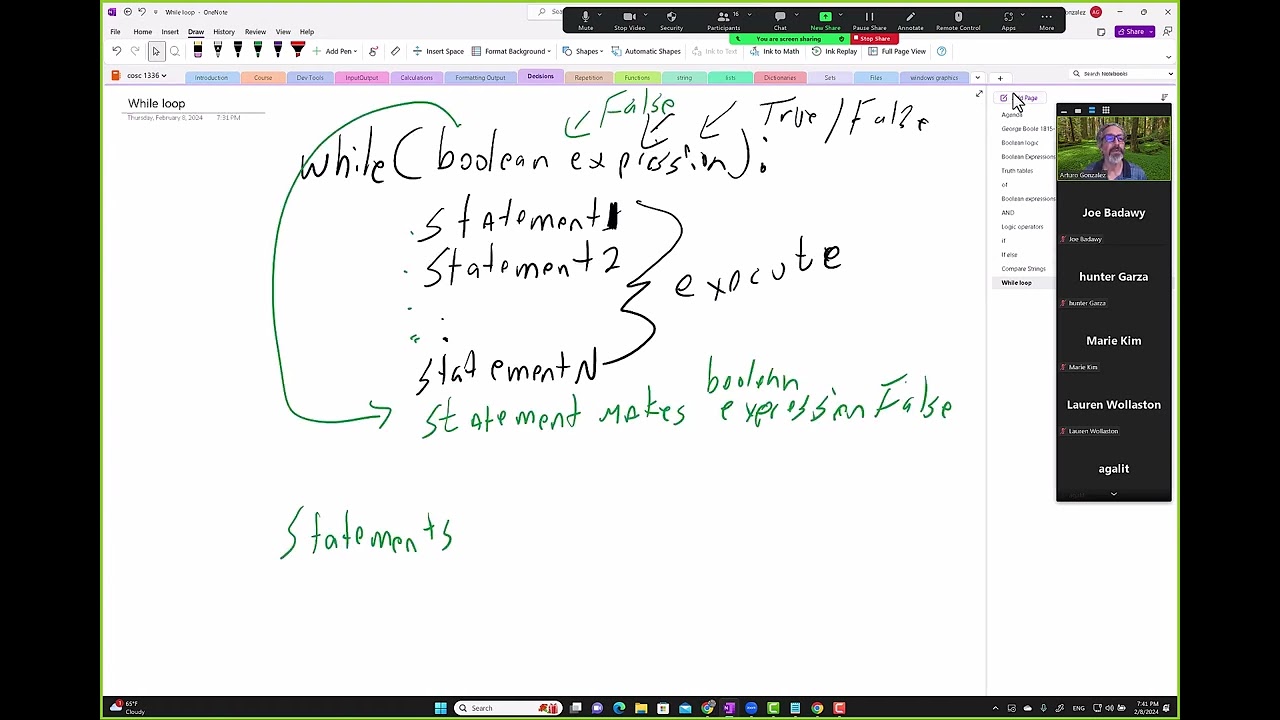 While loop - OneNote
onzalez AG
Mute
Stop Video
Security
Participants 16
Chat
New Share
Pause Share
Annotate
Remote Control
Apps
More
You are screen sharing
Stop Share
File Home Insert Draw History Review View Help
Share
Add Pen
Insert Space
Format Background
Shapes
Automatic Shapes
Ink to Text
Ink to Math
Ink Replay
Full Page View
cosc 1336
Introduction Course Dev Tools InputOutput Calculations Formatting Output Decisions Repetition Functions string lists Dictionaries Sets Files windows graphics
Search Notebooks
While loop
Thursday, February 8, 2024 7:31 PM
False
True/False
while(boolean expression):
statement1
statement2
execute
statementN
boolean
statement makes expression False
statements
Page
Agenda
George Boole 1815-
Boolean logic
Boolean Expressions
Truth tables
of
Boolean expressions
AND
Logic operators
if
If else
Compare Strings
While loop
Arturo Gonzalez
Joe Badawy
Joe Badawy
hunter Garza
hunter Garza
Marie Kim
Marie Kim
Lauren Wollaston
Lauren Wollaston
agalit
65°F
Cloudy
Search
ENG
7:41 PM
2/8/2024